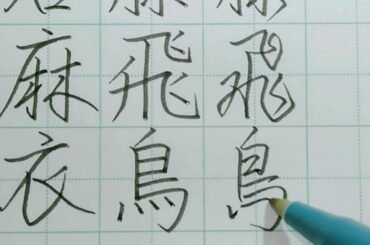 麻 飛 飛
衣 鳥 鳥